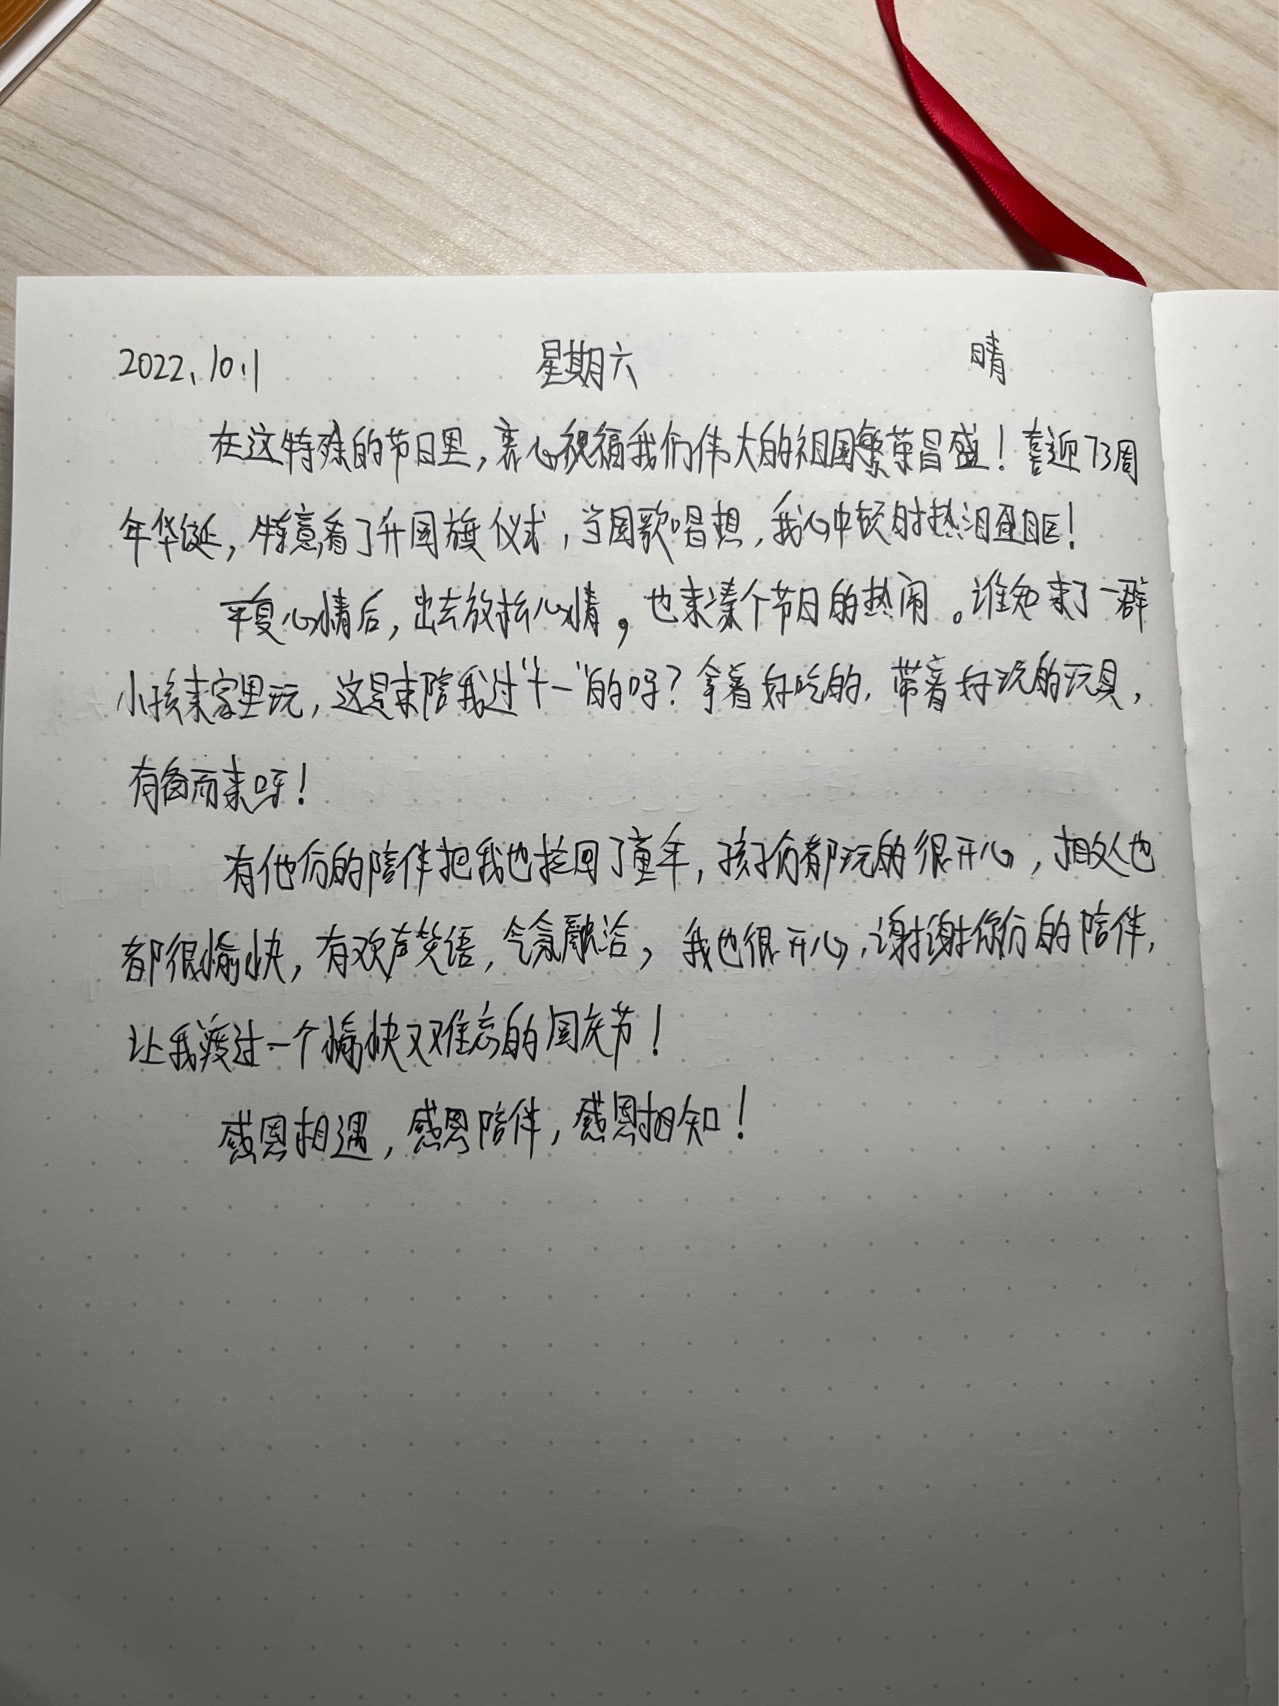 2022.10.1 星期六 晴
在这特殊的节日里,衷心祝福我们伟大的祖国繁荣昌盛!喜迎73周
年华诞,特意看了升国旗仪式,当国歌唱想,我心中顿时热泪盈眶!
平复心情后,出去放松心情,也来凑个节日的热闹。谁知来了一群
小孩来家里玩,这是来陪我过“十一”的吗?拿着好吃的,带着好玩的玩具,
有备而来呀!
有他们的陪伴把我也拉回了童年,孩子们都玩的很开心,相处也
都很愉快,有欢声笑语,气氛融洽,我也很开心,谢谢你们的陪伴,
让我渡过一个愉快又难忘的国庆节!
感恩相遇,感恩陪伴,感恩相知!